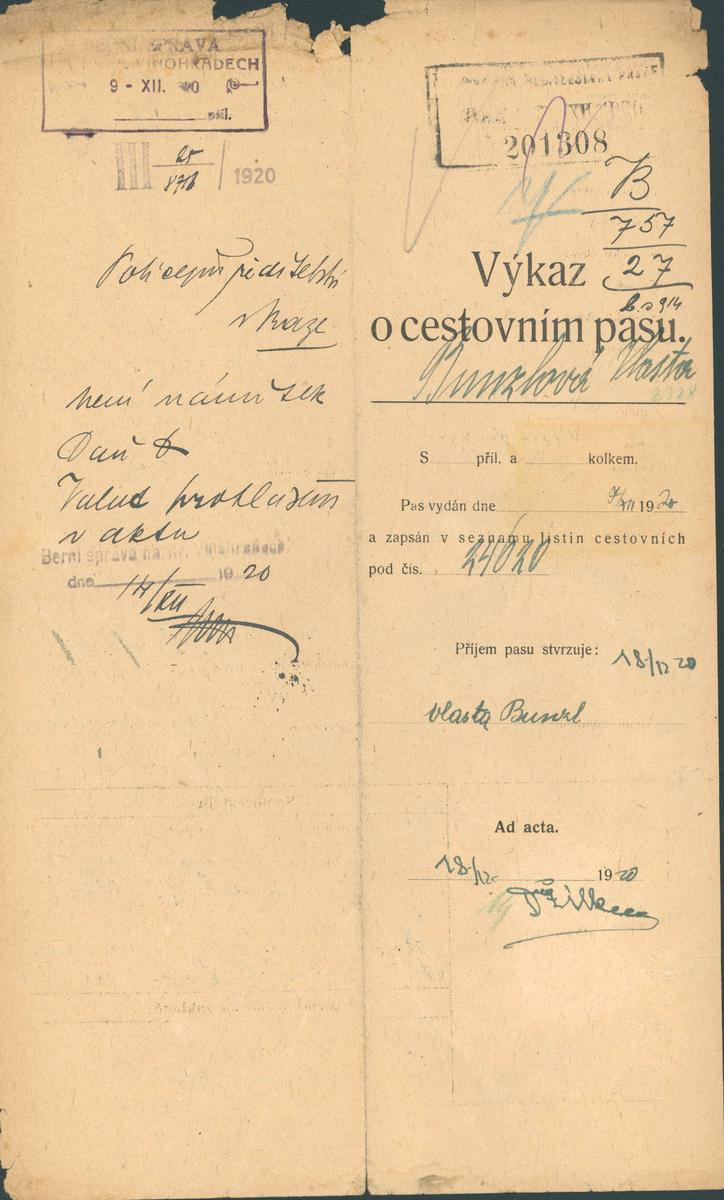 SPRÁVA
VINOHRADECH
9 - XII. 20
příl.
III 25/878 / 1920
Policejní ředitelství
v Praze
není námitek
Daň
v aktu
Berní správa na Kr. Vinohradech
dne 14/XII 1920
201308
B
757
27
Výkaz
o cestovním pasu.
Bunzlová Vlasta
2328
S příl. a kolkem.
Pas vydán dne 9/XII 1920
a zapsán v seznamu listin cestovních
pod čís. 24020
Příjem pasu stvrzuje: 18/12 20
Vlasta Bunzl
Ad acta.
18/12 1920